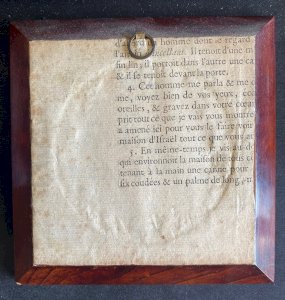 homme dont le regard
Il tenoit d'une m
fin lin, il portoit dans l'autre une ca
& il se tenoit devant la porte.
4. Cet homme me parla & me d
me, voyez bien de vos yeux, éco
oreilles, & gravez dans votre cœur
prit tout ce que je vais vous montre
a amené ici pour vous le faire voir
maison d'Israël tout ce que vous a
5. En même-temps je vis au-de
qui environnoit la maison de tous cô
tenant à la main une canne pour
six coudées & un palme de long